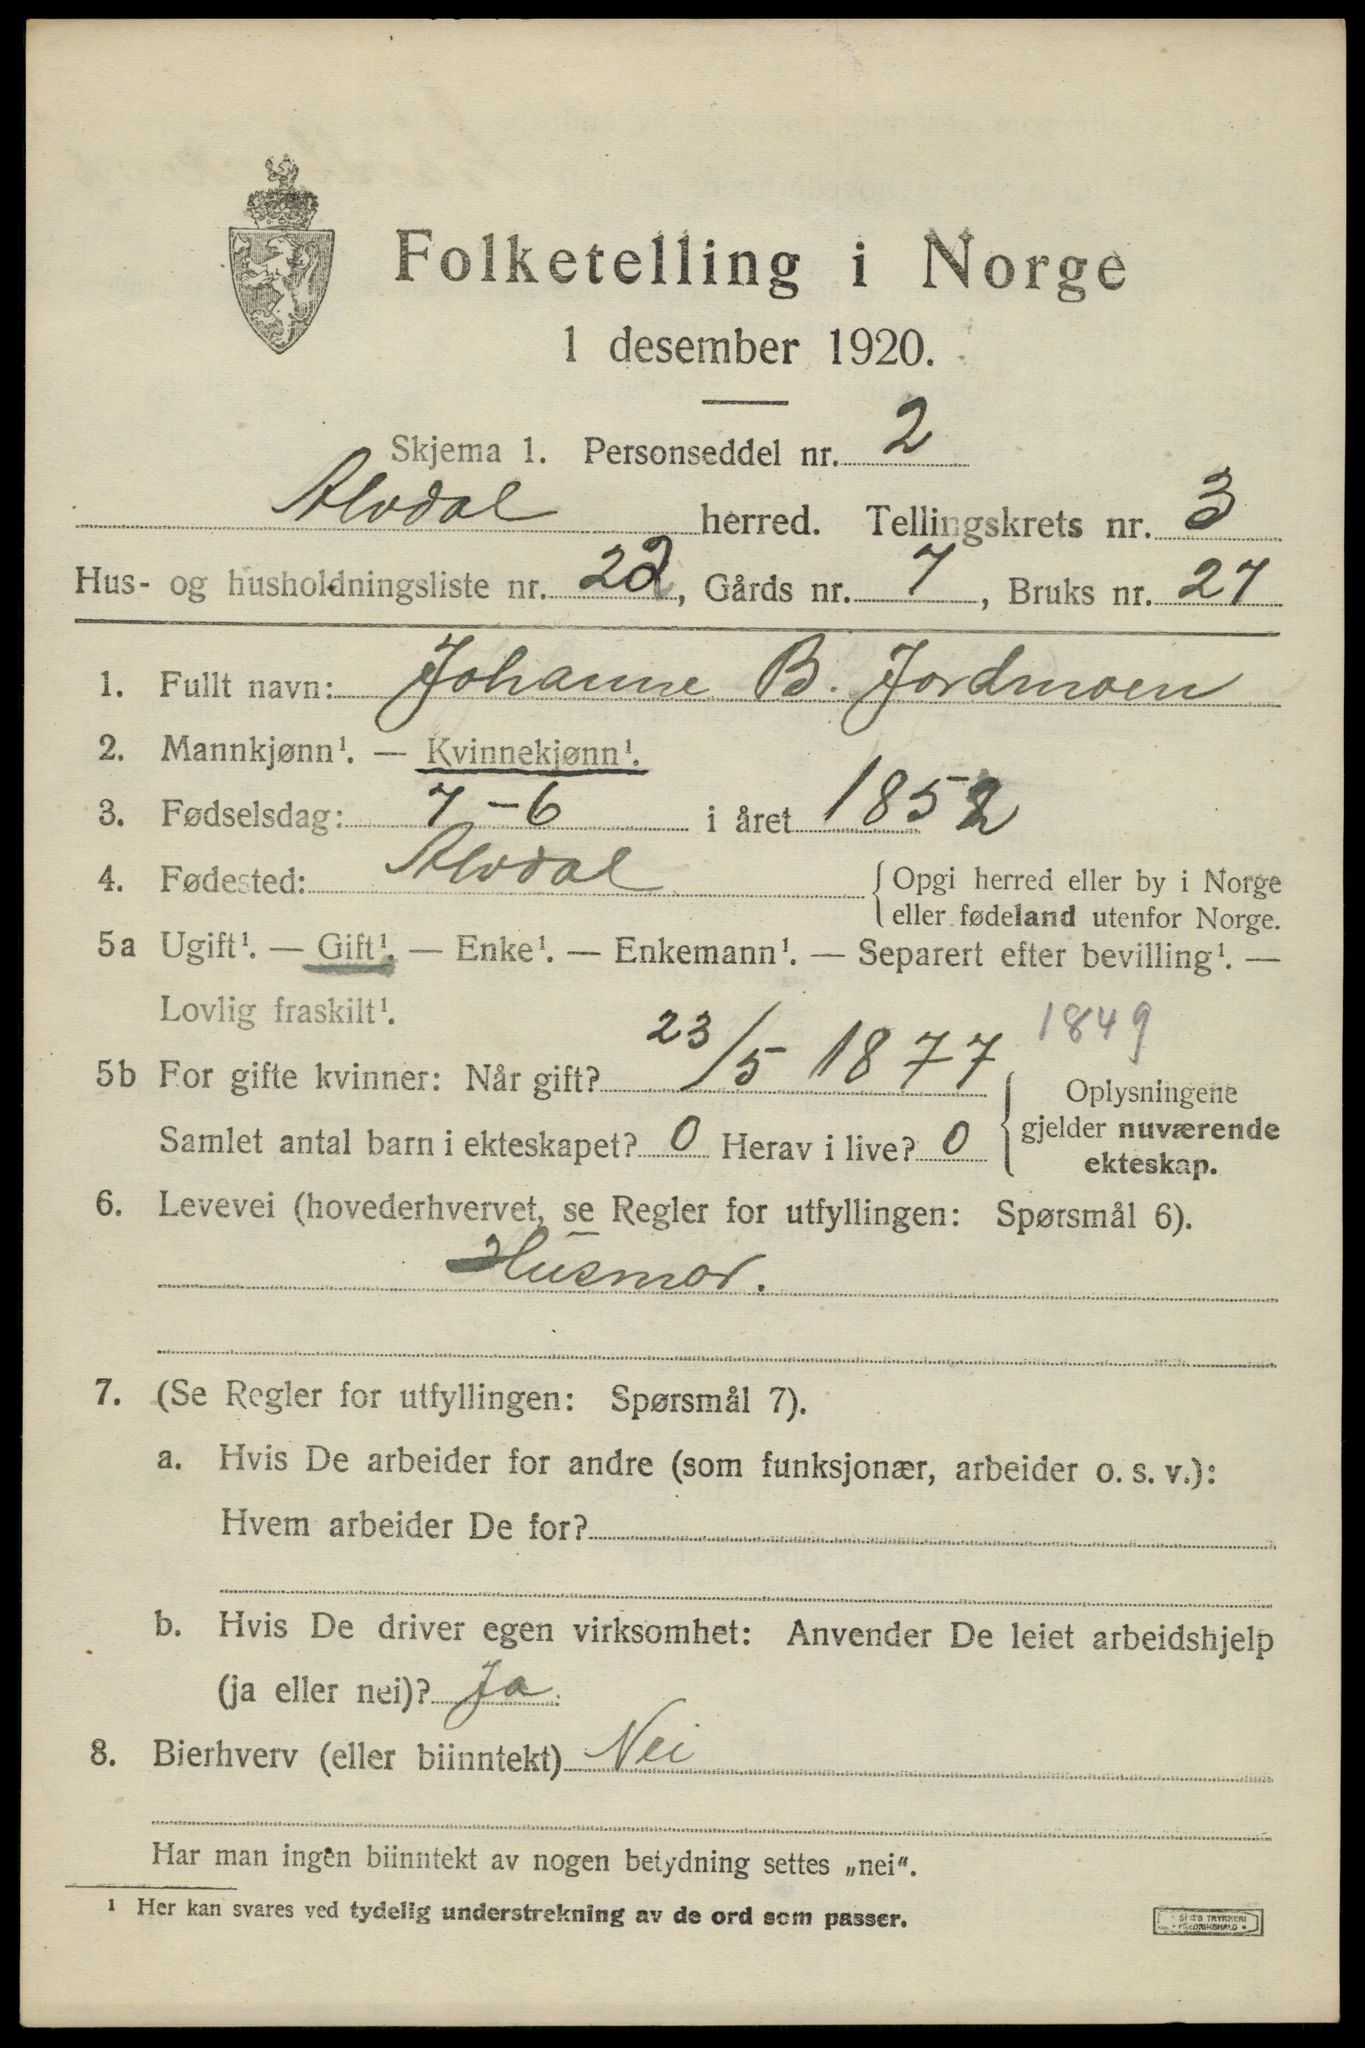 Folketelling i Norge
1 desember 1920.
Skjema 1. Personseddel nr. 2
Alvdal herred. Tellingskrets nr. 3
Hus- og husholdningsliste nr. 22, Gårds nr. 7, Bruks nr. 27
1. Fullt navn: Johanne B. Jordmoen
2. Mannkjønn¹. — Kvinnekjønn¹.
3. Fødselsdag: 7-6 i året 1852
4. Fødested: Alvdal {Opgi herred eller by i Norge
eller fødeland utenfor Norge.
5a Ugift¹. — Gift¹. — Enke¹. — Enkemann¹. — Separert efter bevilling¹. —
Lovlig fraskilt¹.
1849
5b For gifte kvinner: Når gift? 23/5 1877
Samlet antal barn i ekteskapet? 0 Herav i live? 0
{Oplysningene
gjelder nuværende
ekteskap.
6. Levevei (hovederhvervet, se Regler for utfyllingen: Spørsmål 6).
Husmor.
7. (Se Regler for utfyllingen: Spørsmål 7).
a. Hvis De arbeider for andre (som funksjonær, arbeider o. s. v.):
Hvem arbeider De for?
b. Hvis De driver egen virksomhet: Anvender De leiet arbeidshjelp
(ja eller nei)? Ja.
8. Bierhverv (eller biinntekt) Nei
Har man ingen biinntekt av nogen betydning settes „nei".
¹ Her kan svares ved tydelig understrekning av de ord som passer.
TRYKKERI
FREDRIKSHALD